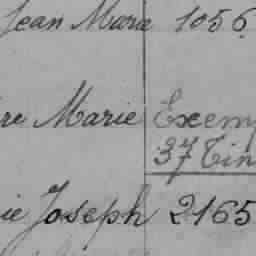 Jean Marie 1056
re Marie Exem
37 Tin
ie Joseph 2165